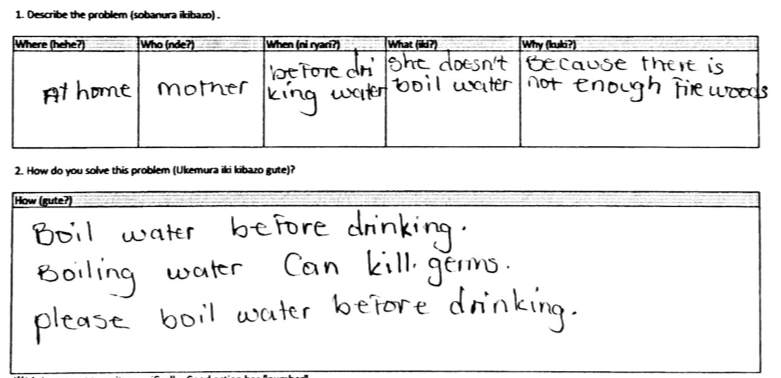 1. Describe the problem (sobanura ikibazo).
Where (hehe?) Who (nde?) When (ni ryari?) What (iki?) Why (kuki?)
At home mother before dri king water she doesn't boil water Because there is not enough fire woods
2. How do you solve this problem (Ukemura iki kibazo gute)?
How (gute?)
Boil water before drinking.
Boiling water can kill germs.
please boil water before drinking.